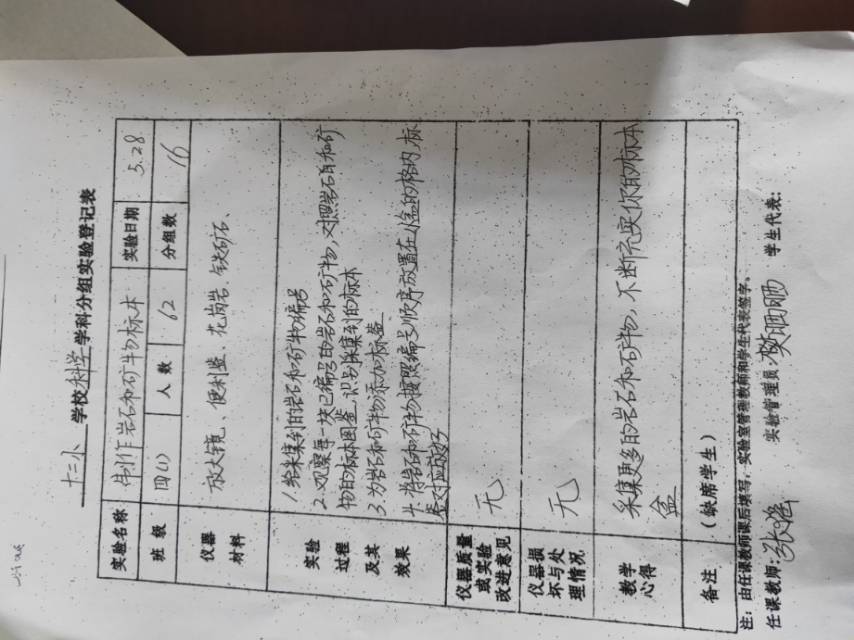 十二小 学校科学学科分组实验登记表
实验名称 制作岩石和矿物标本 实验日期 5.28
班 级 四(1) 人 数 62 分组数 16
仪器
材料
放大镜、便利签、花岗岩、铁矿石、
实验
过程
及其
效果
1.给采集到的岩石和矿物编号
2.观察每一块已编号的岩石和矿物,对照岩石和矿
物的标本图鉴,识别采集到的标本
3.为岩石和矿物添加标签
4.将岩石和矿物按照编号顺序放置在小盒的格内,标
签对应放好
仪器质量
或实验
改进意见
无
仪器损
坏与处
理情况
无
教学
心得
采集更多的岩石和矿物,不断充实你的标本
盒
备注 (缺席学生)
注:由任课教师课后填写,实验室管理教师和学生代表签字。
任课教师:张 实验管理员: 学生代表: